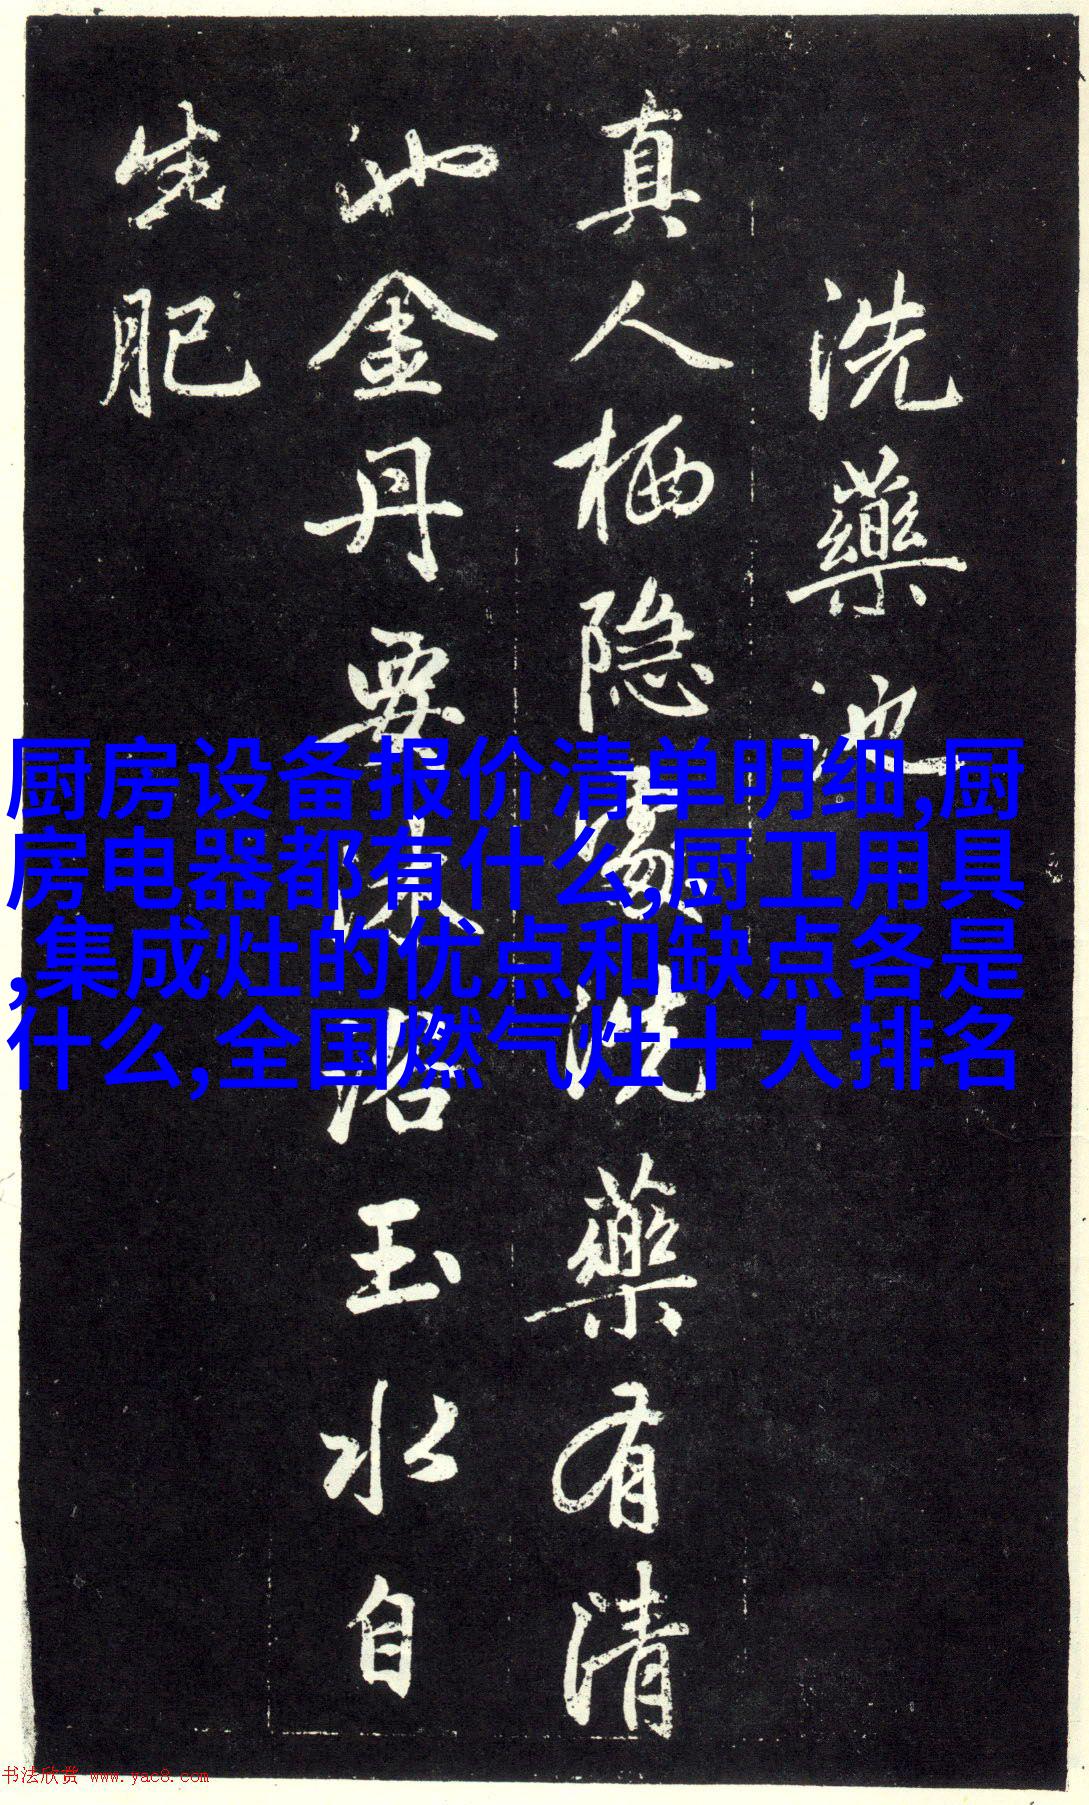 洗藥池
真人栖隐處洗藥有清
池金丹要沐浴玉水自
生肥
厨房设备报价清单明细,厨
房电器都有什么,厨卫用具
,集成灶的优点和缺点各是
什么,全国燃气灶十大排名
书法欣赏 www.yac8.com